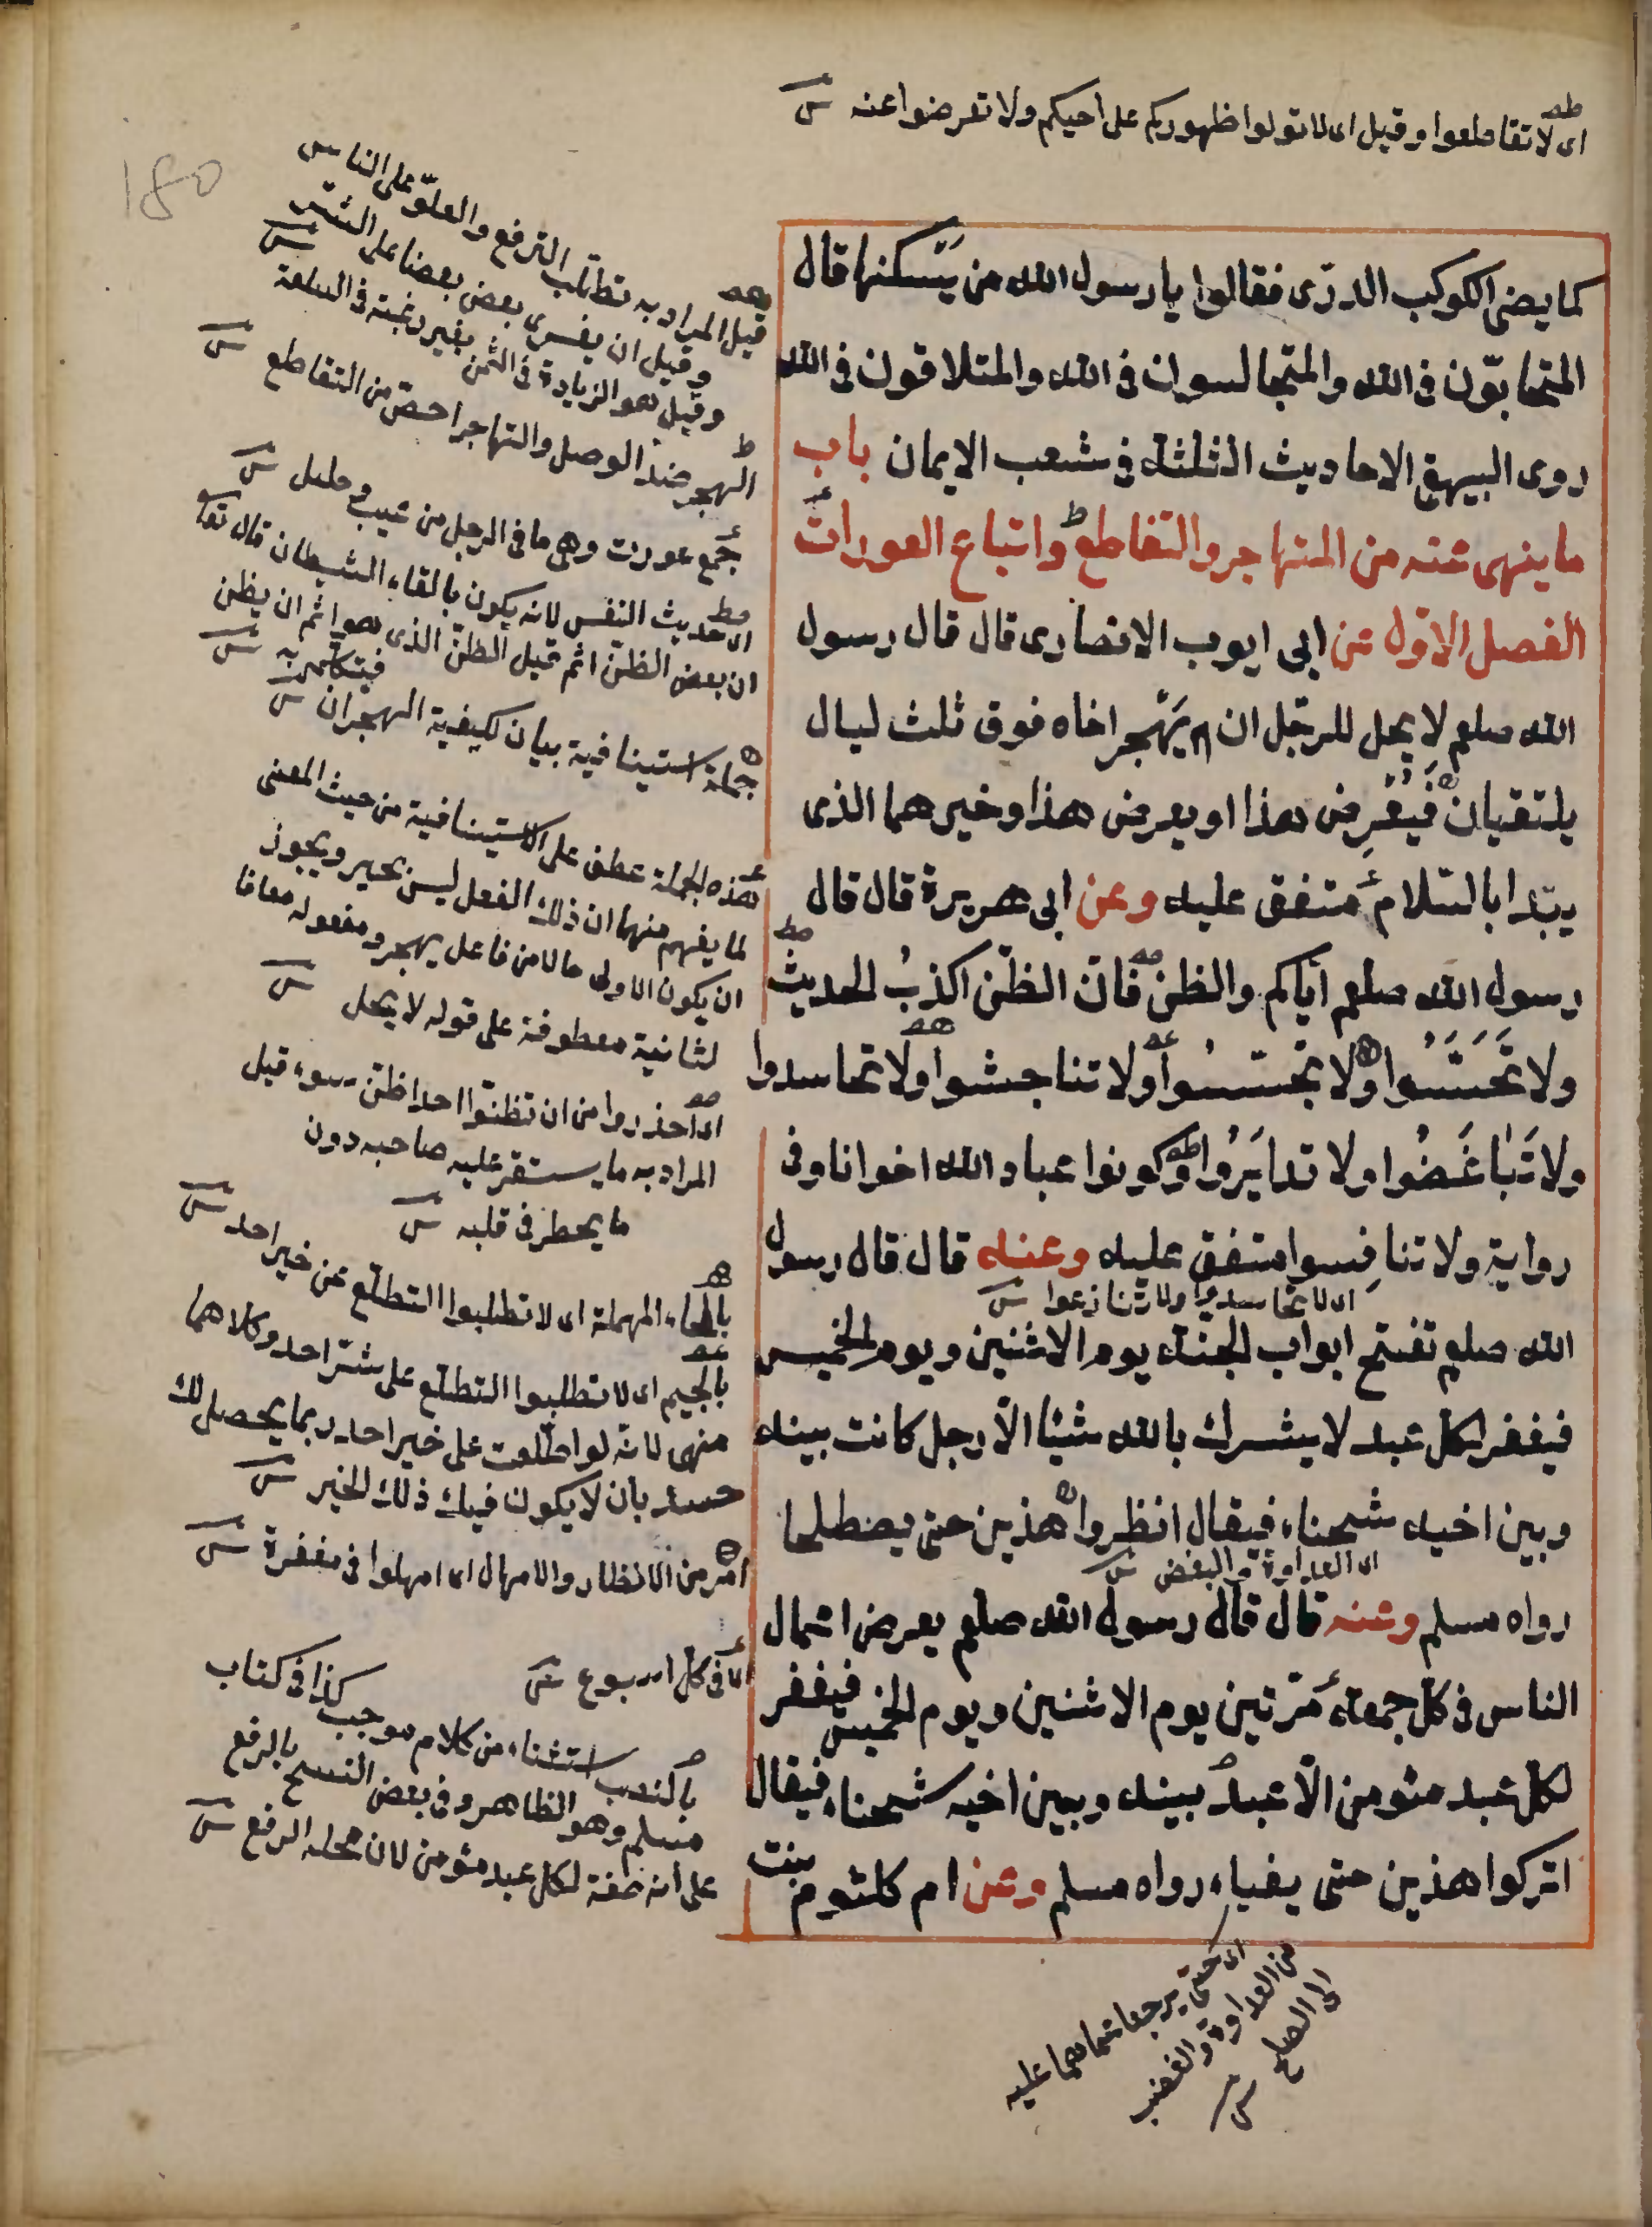 اى لا تقاطعوا وقيل اى لا تولوا ظهوركم على اخيكم ولا تعرضوا عنه
180
كما يضئ الكوكب الدرّى فقالوا يا رسول الله من يَسكنها قال
المتحابّون فى الله والمتجالسون فى الله والمتلاقون فى الله
روى البيهقى الاحاديث الثلثة فى شعب الايمان باب
ما ينهى عنه من المتهاجر والتقاطع واتباع العورات
الفصل الاوّل عن ابى ايوب الانصارى قال قال رسول
الله صلعم لا يحل للرّجل ان يَهجر اخاه فوق ثلث ليال
يلتقيان فيُعْرِض هذا او يعرض هذا وخيرهما الذى
يبَدا بالسّلام متفق عليه وعن ابى هريرة قال قال
رسول الله صلعم ايّاكم والظنّ فانّ الظنّ اكذبُ الحديث
ولا تَحَسَّسُوا ولا تجسّسُوا ولا تناجشوا ولا تحاسدوا
ولا تَبَاغَضُوا ولا تدابَرُوا وكونوا عباد الله اخوانا وفى
رواية ولا تنافِسوا متفق عليه وعنه قال قال رسول
اى لا تحاسدوا ولا تنازعوا
الله صلعم تفتح ابواب الجنة يوم الاثنين ويوم الخميس
فيغفر لكلّ عبد لا يشرك بالله شيئا الّا رجل كانت بينه
وبين اخيه شحناء فيقال انظروا هذين حتى يصطلحا
اى العداوة والبغض
رواه مسلم وعنه قال قال رسول الله صلعم يعرض اعمال
الناس فى كلّ جمعة مرّتين يوم الاثنين ويوم الخميس فيغفر
لكلّ عبد مؤمن الّا عبدٌ بينه وبين اخيه شحناء فيقال
اتركوا هذين حتى يفياء رواه مسلم وعن ام كلثوم بنت
قيل المراد به تطلّب الترفع والعلوّ على الناس
وقيل ان يغرى بعض بعضا على الشرّ
وقيل هو الزيادة فى الثمن بغير رغبة فى السلعة
الهجر ضدّ الوصل والتهاجر اخصّ من التقاطع
جمع عورت وهى ما فى الرجل من عيب وخلل
اى حديث النفس لانه يكون بالقاء الشيطان قال تعا
ان بعض الظنّ اثم قيل الظنّ الذى هو اثم ان يظن
فيتكلم به
جملة استينافية بيان لكيفية الهجران
هذه الجملة عطف على الاستينافية من حيث المعنى
لما يفهم منها ان ذلك الفعل ليس بخير ويجوز
ان يكون الاولى حالا من فاعل يهجر ومفعوله معا فا
لثانية معطوفة على قوله لا يحل
اى احذروا من ان تظنّوا احدا ظنّ سوء قيل
المراد به ما يستقر عليه صاحبه دون
ما يخطر فى قلبه
بالحاء المهملة اى لا تطلبوا التطلّع عن خير احد
بالجيم اى لا تطلبوا التطلّع على شرّ احد وكلاهما
منهى لانّه لو اطّلعت على خير احد ربما يحصل لك
حسد بان لا يكون فيك ذلك الخير
امر من الانظار والامهال اى امهلوا فى مغفرة
اى فى كلّ اسبوع
بالنصب استثناء من كلام موجب كذا فى كتاب
مسلم وهو الظاهر وفى بعض النسخ بالرفع
على انه صفة لكل عبد مؤمن لان محله الرفع
اى حتى يرجعا عما هما عليه
من العداوة والغضب
الى الصلح